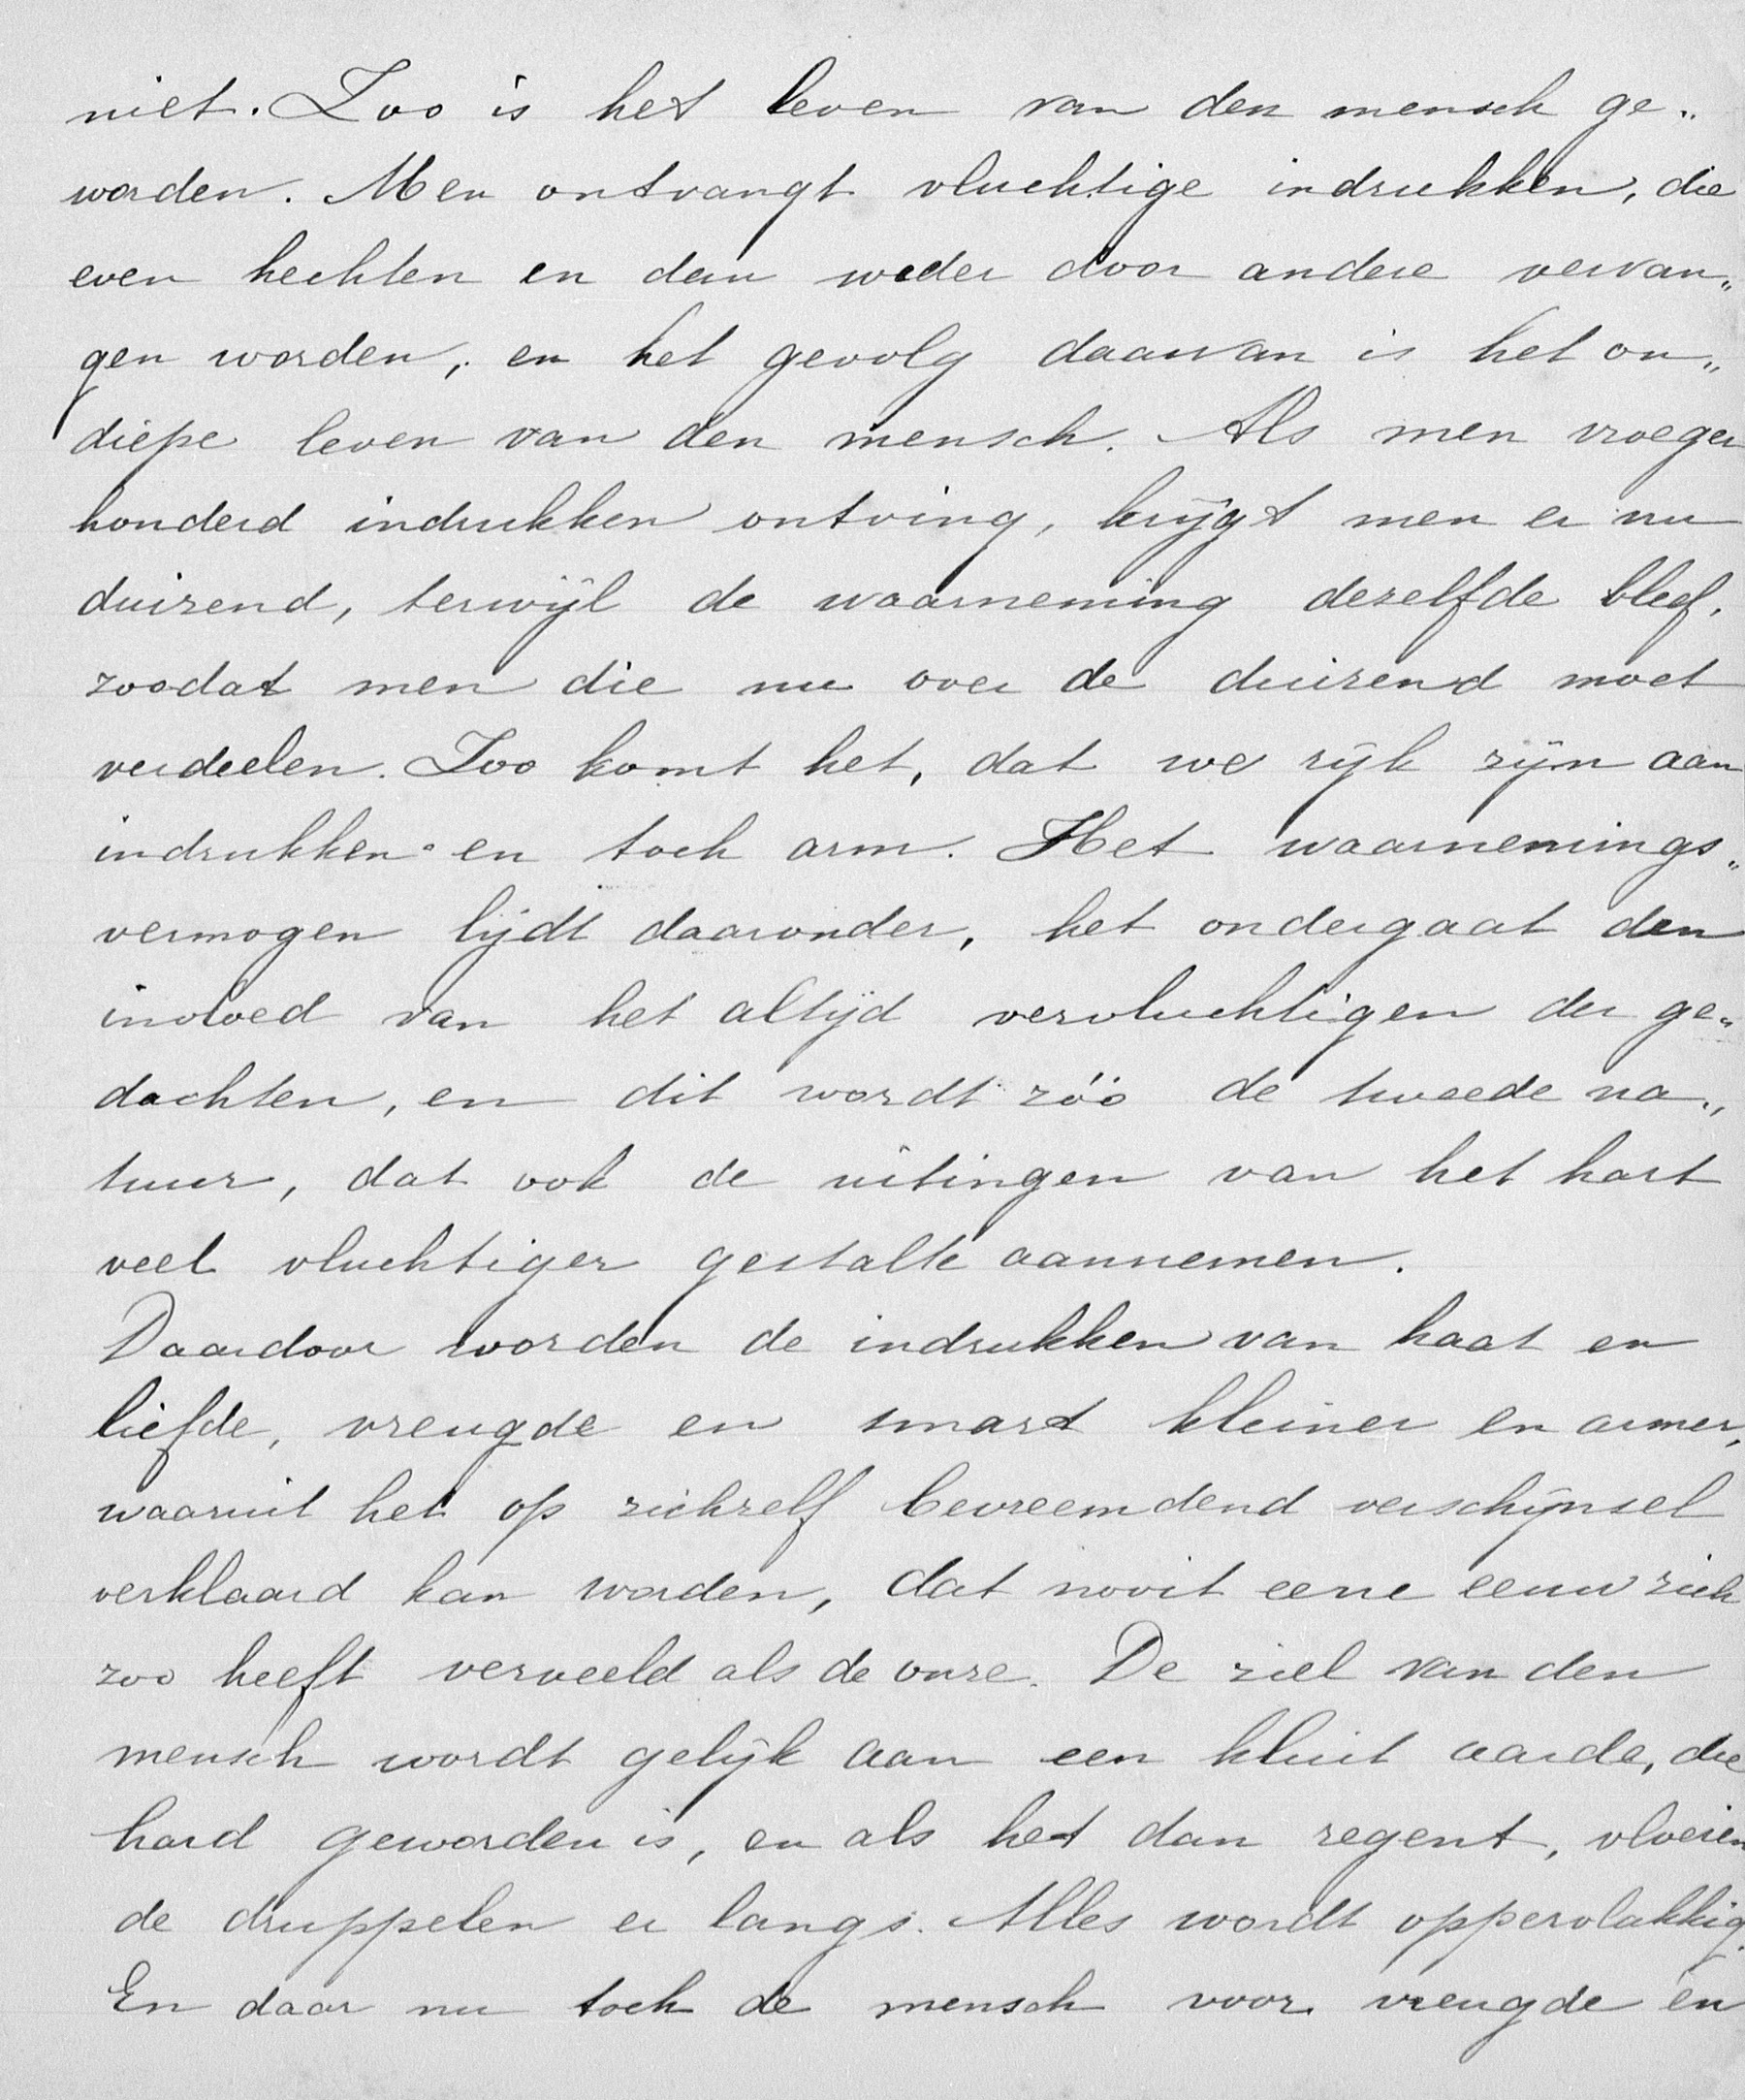 niet. Zoo is het leven van den mensch ge„
worden. Men ontvangt vluchtige indrukken, die
even hechten en dan weder door andere vervan„
gen worden, en het gevolg daarvan is het on„
diepe leven van den mensch. Als men vroeger
honderd indrukken ontving, krijgt men er nu
duizend, terwijl de waarneming dezelfde bleef,
zoodat men die nu over de duizend moet
verdeelen. Zoo komt het, dat we rijk zijn aan
indrukken en toch arm. Het waarnemings„
vermogen lijdt daaronder, het ondergaat den
invloed van het altijd vervluchtigen der ge„
dachten, en dit wordt zóó de tweede na„
tuur, dat ook de uitingen van het hart
veel vluchtiger gestalte aannemen.
Daardoor worden de indrukken van haat en
liefde, vreugde en smart kleiner en armer,
waaruit het op zichzelf bevreemdend verschijnsel
verklaard kan worden, dat nooit eene eeuw zich
zoo heeft verveeld als de onze. De ziel van den
mensch wordt gelijk aan een kluit aarde, die
hard geworden is, en als het dan regent, vloeien
de druppelen er langs. Alles wordt oppervlakkig.
En daar nu toch de mensch voor vreugde en